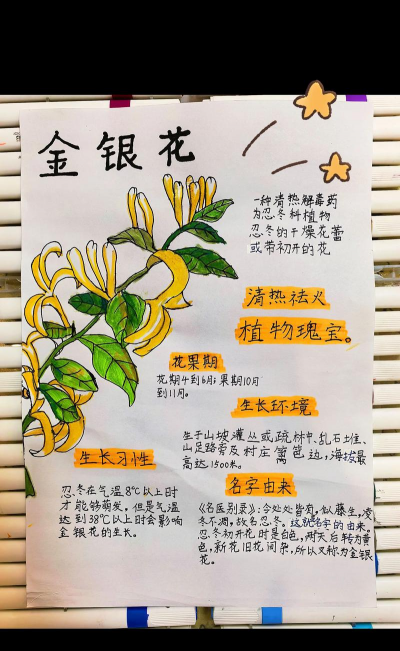 金银花
一种清热解毒药
为忍冬科植物
忍冬的干燥花蕾
或带初开的花
清热祛火
植物瑰宝。
花果期
花期4到6月;果期10月
到11月。
生长环境
生于山坡灌丛或疏林中、乱石堆、
山足路旁及村庄篱笆边,海拔最
高达1500米。
生长习性
忍冬在气温8℃以上时
才能够萌发。但是气温
达到38℃以上时会影响
金银花的生长。
名字由来
《名医别录》:今处处皆有,似藤生,凌
冬不凋,故名忍冬。这就名字的由来。
忍冬初开花时是白色,两天后转为黄
色,新花旧花间杂,所以又称为金银
花。